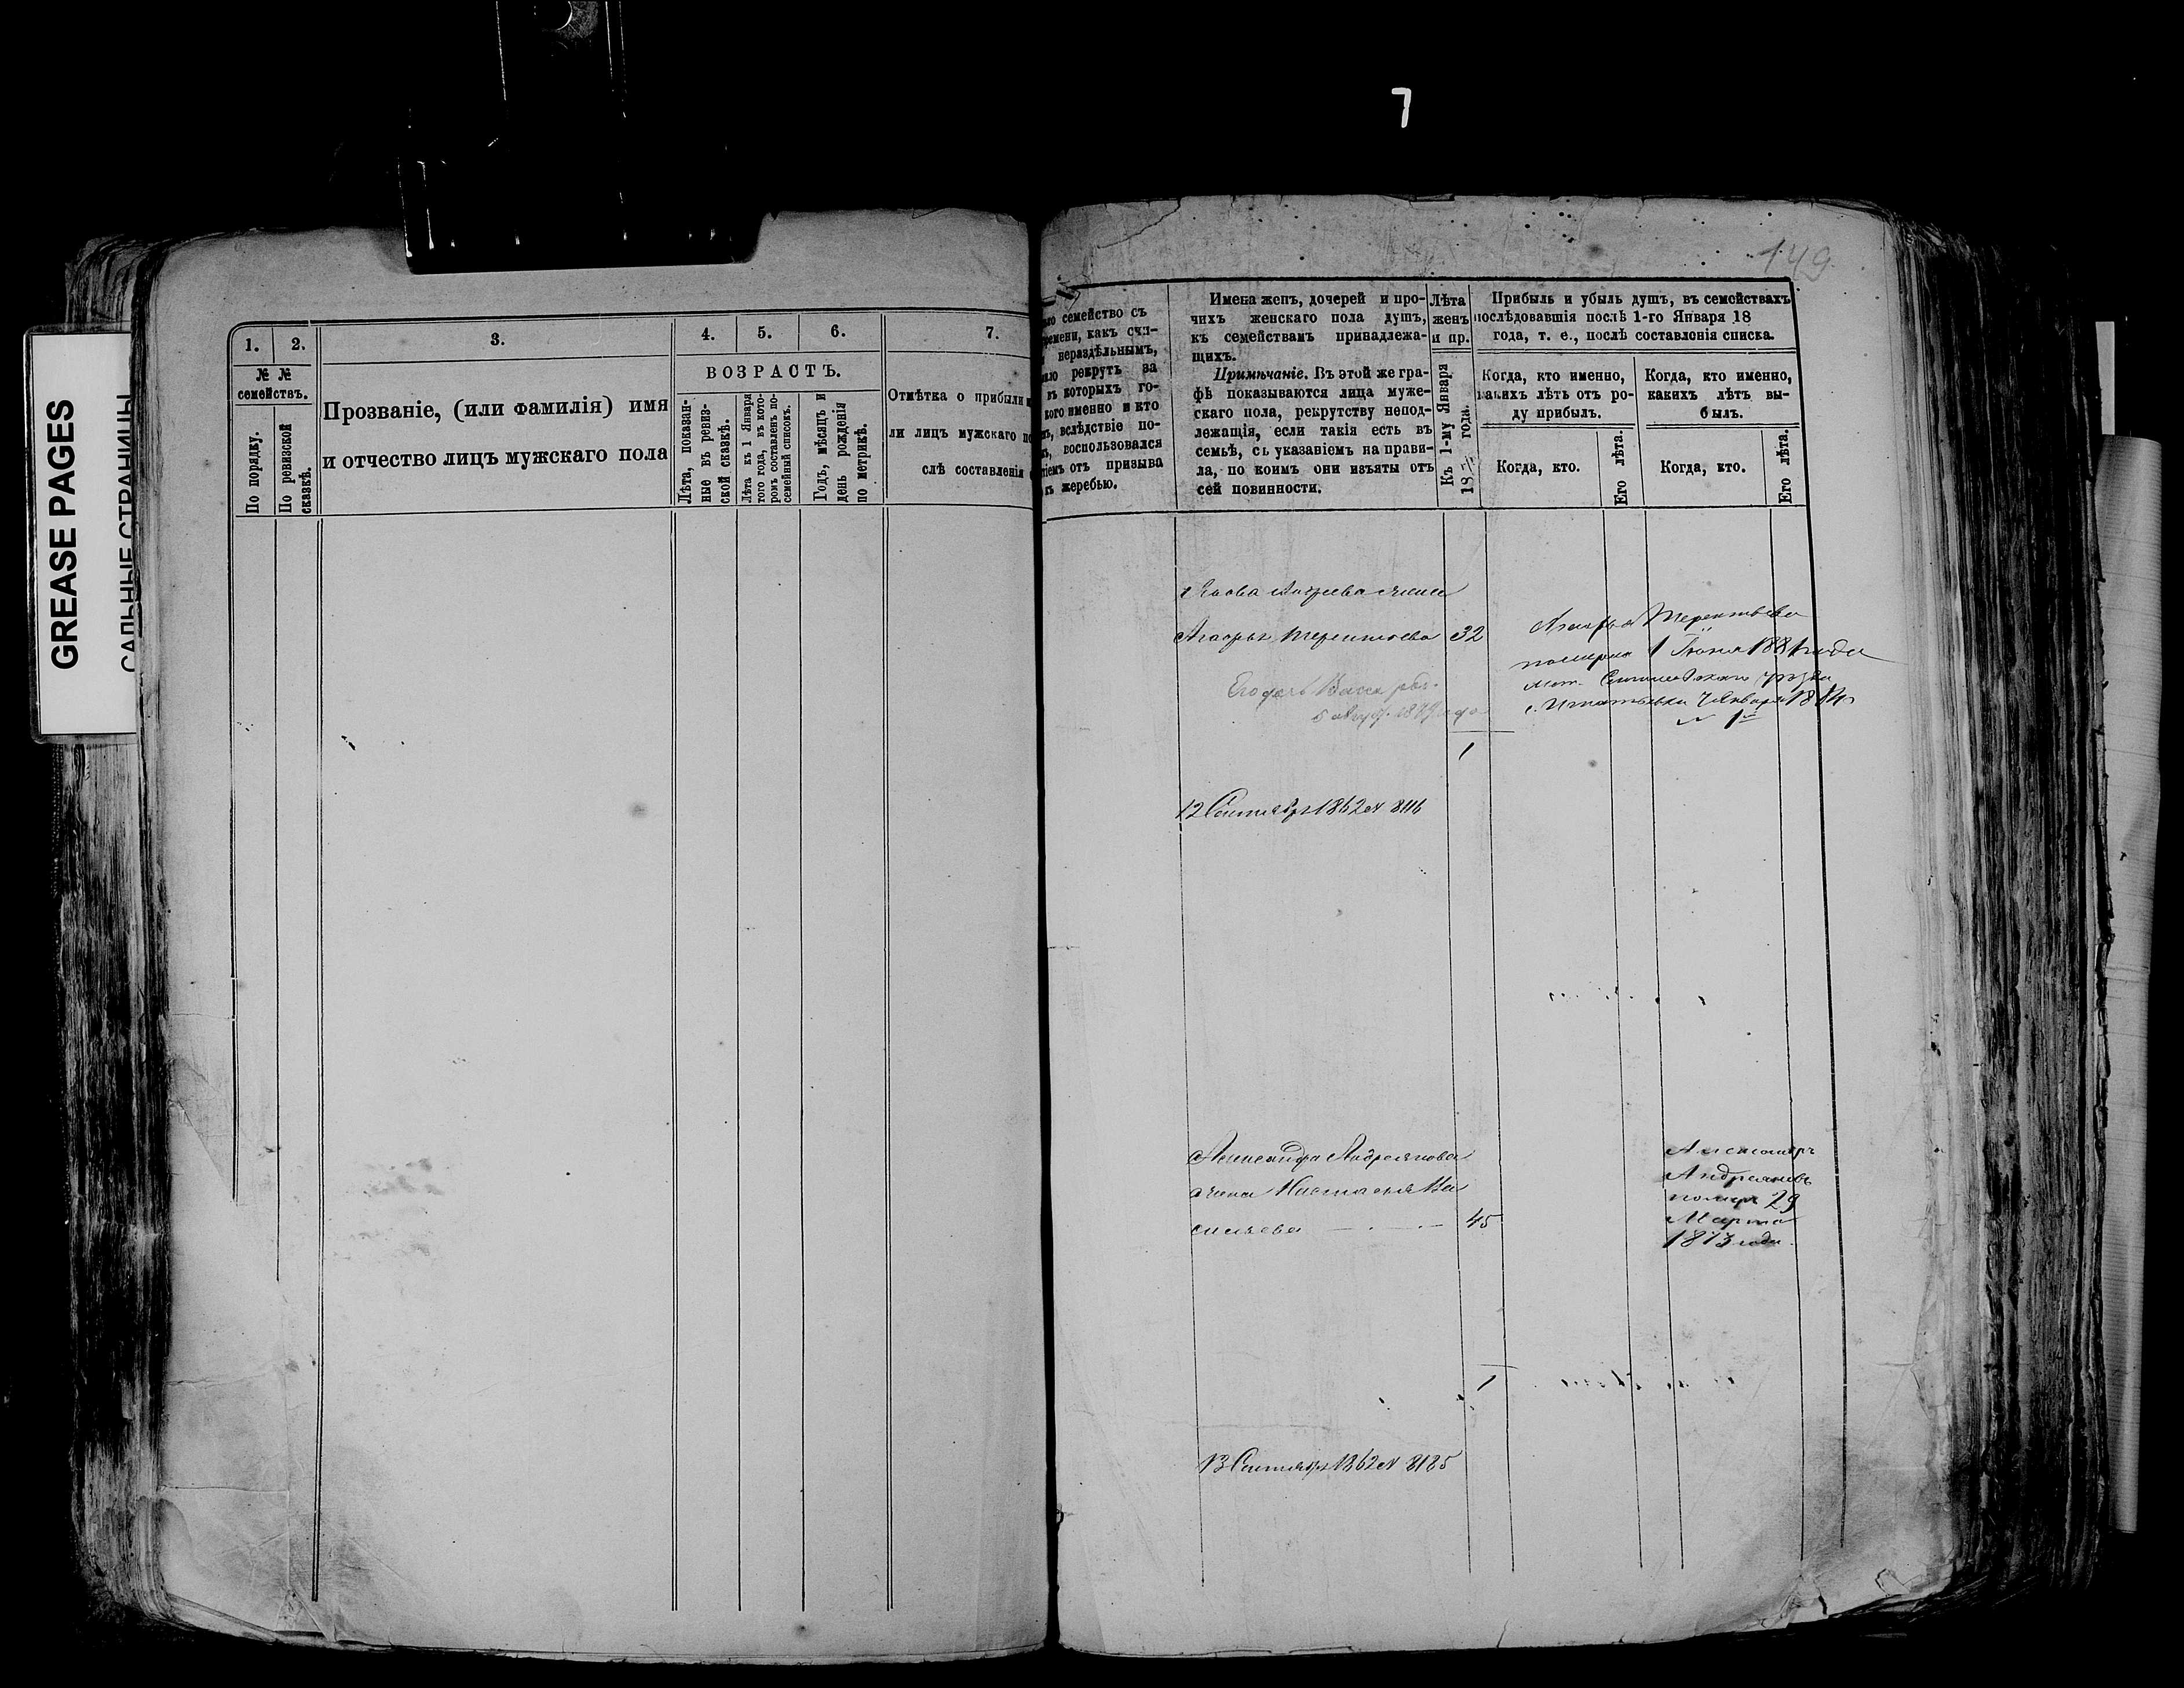 7
GREASE PAGES
САЛЬНЫЕ СТРАНИЦЫ
149
1.
2.
3.
4.
5.
6.
7.
№ №
семействъ.
По порядку.
По ревизской
сказкѣ.
Прозваніе, (или фамилія) имя
и отчество лицъ мужскаго пола
ВОЗРАСТЪ.
Лѣта, показан-
ные въ ревиз-
ской сказкѣ.
Лѣта къ 1 Января
того года, въ кото-
ромъ составленъ по-
семейный списокъ.
Годъ, мѣсяцъ и
день рожденія
по метрикѣ.
Отмѣтка о прибыли и
ли лицъ мужскаго по
слѣ составленія
семейство съ
ремени, какъ счи-
нераздѣльнымъ,
рекрутъ за
въ которыхъ го-
кого именно и кто
вслѣдствіе по-
воспользовался
отъ призыва
жеребью.
Имена женъ, дочерей и про-
чихъ женскаго пола душъ,
къ семействамъ принадлежа-
щихъ.
Примѣчаніе. Въ этой же гра-
фѣ показываются лица муже-
скаго пола, рекрутству непод-
лежащія, если такія есть въ
семьѣ, съ указаніемъ на прави-
ла, по коимъ они изъяты отъ
сей повинности.
Лѣта
женъ
и пр.
Къ 1-му Января
18 года.
Прибыль и убыль душъ, въ семействахъ
послѣдовавшія послѣ 1-го Января 18
года, т. е., послѣ составленія списка.
Когда, кто именно,
какихъ лѣтъ отъ ро-
ду прибылъ.
Когда, кто.
Его лѣта.
Когда, кто именно,
какихъ лѣтъ вы-
былъ.
Когда, кто.
Его лѣта.
жена
Терентьева 32
Терентьева
померла 1 Іюня 1881 года
мет. уѣзда
Января 1884
№ 1
Его дочь Васса род.
5 года
1
12 Сентября 1862 № 8116
Александра Андреянова
жена Настасья Ва
сильева 45
Александръ
Андреяновъ
померъ 29
Марта
1873 года.
1
13 Сентября 1862 № 8185